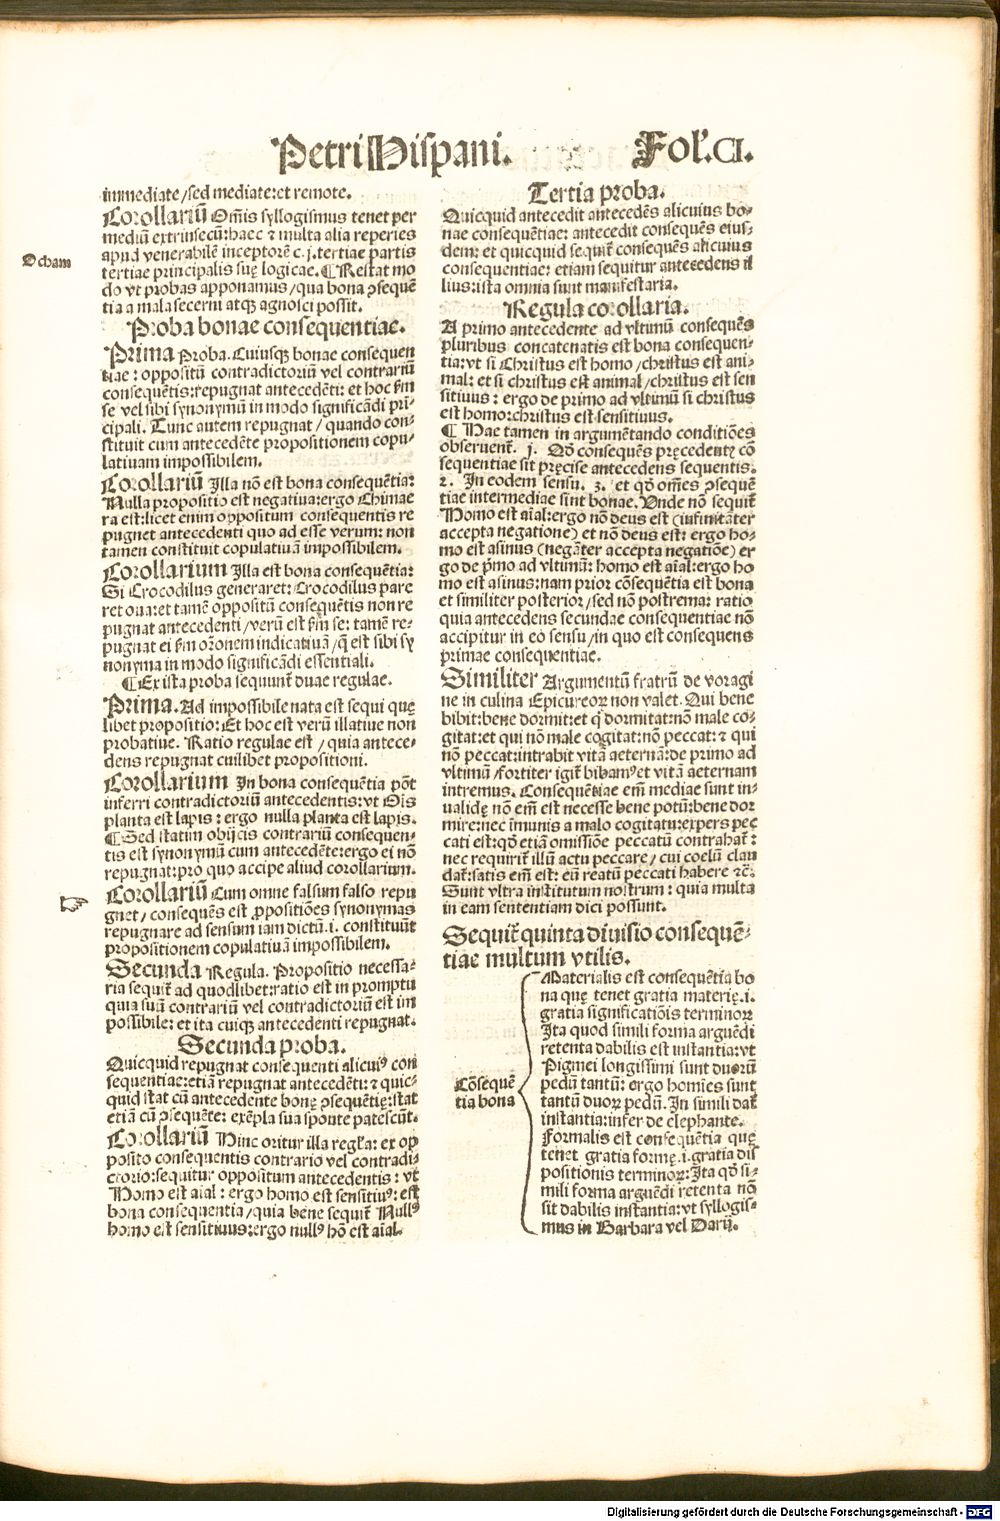 Petri Hispani. Fol'. CI.
immediate/sed mediate:et remote.
Corollariū Omīs syllogismus tenet per
mediū extrinsecū:haec ⁊ multa alia reperies
apud venerabilē inceptorē c.j.tertiae partis
tertiae principalis suę logicae.¶Restat mo
do vt probas apponamus/qua bona ꝯsequē
tia a mala secerni atqꝫ agnosci possit.
Ocham
Proba bonae consequentiae.
Prima Proba.Cuiusqꝫ bonae consequen
tiae: oppositū contradictoriū vel contrariū
consequētis:repugnat antecedēti: et hoc ẜm
se vel sibi synonymū in modo significādi pri-
cipali. Tunc autem repugnat/quando con-
stituit cum antecedēte propositionem copu-
latiuam impossibilem.
Corollariū Illa nō est bona consequētia:
Nulla propositio est negatiua:ergo Chimae
ra est:licet enim oppositum consequentis re
pugnet antecedenti quo ad esse verum: non
tamen constituit copulatiuā impossibilem.
Corollarium Illa est bona consequētia:
Si Crocodilus generaret: Crocodilus pare
ret oua:et tamē oppositū consequētis non re
pugnat antecedenti/verū est ẜm se: tamē re-
pugnat ei ẜm orōnem indicatiuā/q̄ est sibi sy
nonyma in modo significādi essentiali.
¶Ex ista proba sequunt̄ duae regulae.
Prima. Ad impossibile nata est sequi quę
libet propositio: Et hoc est verū illatiue non
probatiue. Ratio regulae est/quia antece-
dens repugnat cuilibet propositioni.
Corollarium In bona consequētia pōt
inferri contradictoriū antecedentis:vt Oīs
planta est lapis: ergo nulla planta est lapis.
¶Sed statim obijcis contrariū consequen-
tis est synonymū cum antecedēte:ergo ei nō
repugnat:pro quo accipe aliud corollarium.
Corollariū Cum omne falsum falso repu
gnet/consequēs est ꝓpositiōes synonymas
repugnare ad sensum iam dictū.i. constituūt
propositionem copulatiuā impossibilem.
Secunda Regula. Propositio necessa-
ria sequit̄ ad quodlibet:ratio est in promptu
quia suū contrariū vel contradictoriū est im
possibile: et ita cuiqꝫ antecedenti repugnat.
Secunda proba.
Quicquid repugnat consequenti alicui⁹ con
sequentiae:etiā repugnat antecedēti: ⁊ quic-
quid stat cū antecedente bonę ꝯsequētię:stat
etiā cū ꝯsequēte: exēpla sua sponte patescūt.
Corollariū Hinc oritur illa regl'a: ex op
posito consequentis contrario vel contradi-
ctorio:sequitur oppositum antecedentis: vt
Homo est aīal: ergo homo est sensitiu⁹: est
bona consequentia/quia bene sequit̄ Null⁹
homo est sensitiuus:ergo null⁹ hō est aīal.
Tertia proba.
Quicquid antecedit antecedēs alicuius bo-
nae consequētiae: antecedit consequēs eius-
dem: et quicquid sequit̄ consequēs alicuius
consequentiae: etiam sequitur antecedens il
lius:ista omnia sunt manifestaria.
Regula corollaria.
A primo antecedente ad vltimū consequēs
pluribus concatenatis est bona consequen-
tia:vt si Christus est homo/christus est ani-
mal: et si christus est animal/christus est sen
sitiuus: ergo de primo ad vltimū si christus
est homo:christus est sensitiuus.
¶ Hae tamen in argumētando conditiōes
obseruent̄. j. Qd̄ consequēs pręcedentꝭ cō
sequentiae sit pręcise antecedens sequentis.
2. In eodem sensu. 3. et qd̄ omēs ꝯsequē
tiae intermediae sint bonae. Vnde nō sequit̄
Homo est aīal:ergo nō deus est (infinitāter
accepta negatione) et nō deus est: ergo ho-
mo est asinus (negāter accepta negatiōe) er
go de p̄mo ad vltimū: homo est aīal:ergo ho
mo est asinus:nam prior cōsequētia est bona
et similiter posterior/sed nō postrema: ratio
quia antecedens secundae consequentiae nō
accipitur in eo sensu/in quo est consequens
primae consequentiae.
Similiter Argumentū fratrū de voragi
ne in culina Epicureoꝝ non valet. Qui bene
bibit:bene dormit:et q̇ dormitat:nō male co-
gitat:et qui nō male cogitat:nō peccat: ⁊ qui
nō peccat:intrabit vitā aeternā:de primo ad
vltimū/fortiter igit̄ bibam⁹et vitā aeternam
intremus. Consequētiae em̄ mediae sunt in-
ualidę nō em̄ est necesse bene potū:bene dor
mire:nec īmunis a malo cogitatu:expers pec
cati est:qd̄ etiā omissiōe peccatū contrahat̄:
nec requirit̄ illū actu peccare/cui coelū clau
dat̄:satis em̄ est: eū reatū peccati habere ⁊c̄.
Sunt vltra institutum nostrum: quia multa
in eam sententiam dici possunt.
Sequit̄ quinta diuisio consequē-
tiae multum vtilis.
Cōsequē
tia bona
Materialis est consequētia bo
na quę tenet gratia materię.i.
gratia significatiōis terminoꝝ
Ita quod simili forma arguēdi
retenta dabilis est instantia:vt
Pigmei longissimi sunt duorū
pedū tantū: ergo homīes sunt
tantū duoꝝ pedū. In simili dat̄
instantia:infer de elephante.
Formalis est consequētia quę
tenet gratia formę.i.gratia dis
positionis terminoꝝ:Ita qd̄ si-
mili forma arguēdi retenta nō
sit dabilis instantia:vt syllogis-
mus in Barbara vel Darij.
Digitalisierung gefördert durch die Deutsche Forschungsgemeinschaft - DFG